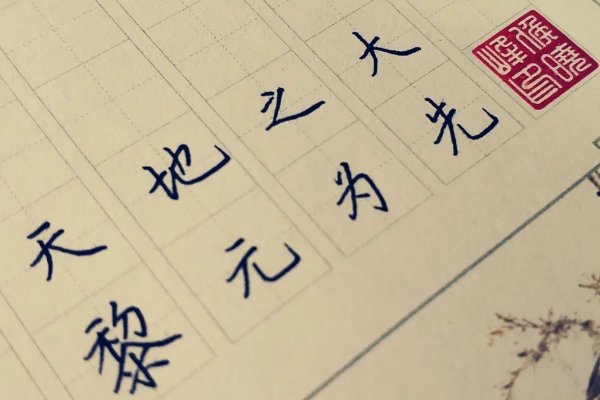 天地之大
黎元为先